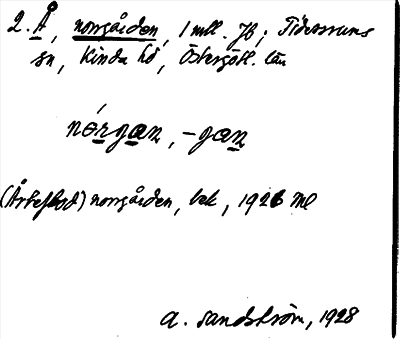 2. Å, norrgården, 1 mtl. Jb; Tidersrums
sn, Kinda hd, Östergötl. län
nórgan, -gan
norrgården, bek, 1926 ml
A. Sandström, 1928